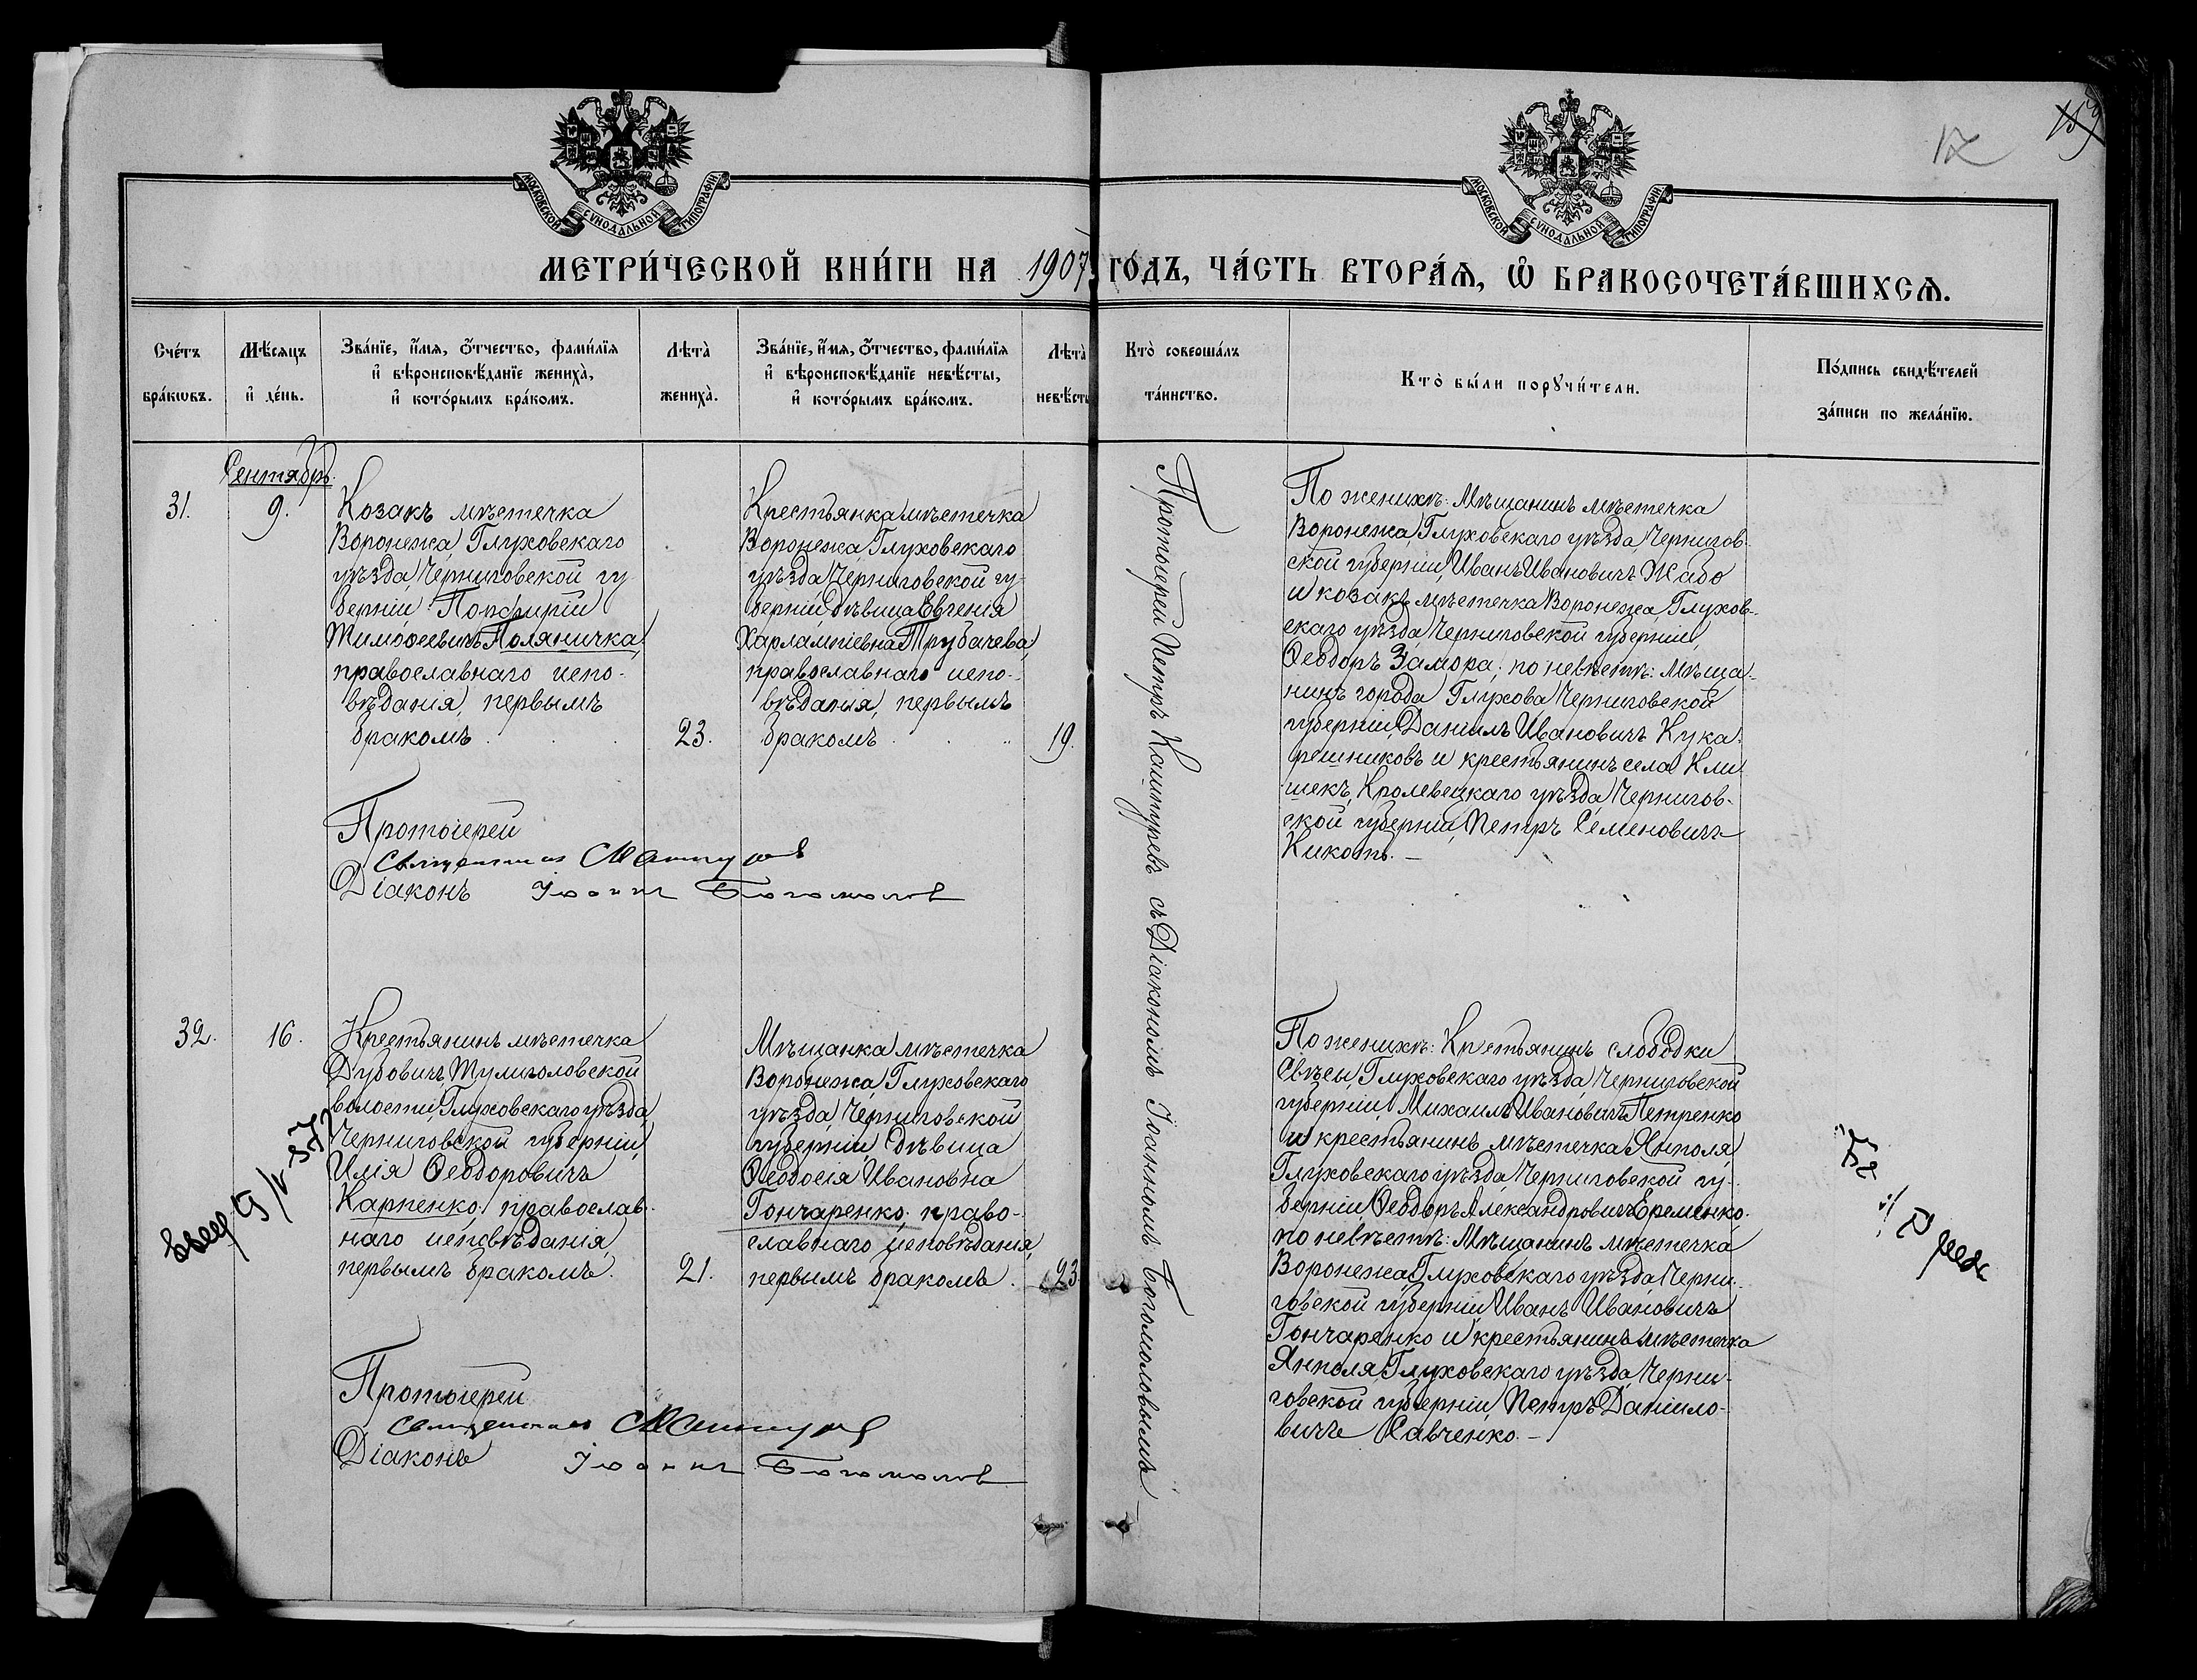 17
159
МОСКОВСКОЙ СѴНОДАЛЬНОЙ ТИПОГРАФІИ
МОСКОВСКОЙ СѴНОДАЛЬНОЙ ТИПОГРАФІИ
МЕТРИ́ЧЕСКОЙ КНИ́ГИ НА 1907 ГОДЪ, ЧА́СТЬ ВТОРА́Ѧ, Ѽ БРАКОСОЧЕТА́ВШИХСѦ.
Сче́тъ бра́кѡвъ.
Мѣ́сяцъ и҆ де́нь.
Зва́нїе, и҆́мя, ѻ҆́тчество, фами́лїя
и҆ вѣроисповѣ́данїе жениха̀,
и҆ кото́рымъ бра́комъ.
Лѣта̀ жениха̀.
Зва́нїе, и҆́мя, ѻ҆́тчество, фами́лїя
и҆ вѣроисповѣ́данїе невѣ́сты,
и҆ кото́рымъ бра́комъ.
Лѣта̀ невѣ́сты
Кто̀ соверша́лъ та́инство.
Кто̀ бы́ли порꙋчи́тели.
По́дпись свидѣ́телей
за́писи по жела́нїю.
Сентябрь.
31.
9.
Козакъ мѣстечка
Воронежа, Глуховскаго
уѣзда, Черниговской гу-
берніи Порфирій
Тимоѳеевичъ Поляничка,
православнаго испо-
вѣданія, первымъ
бракомъ
23.
Крестьянка мѣстечка
Воронежа, Глуховскаго
уѣзда, Черниговской гу-
берніи, дѣвица Евгенія
Харлампіевна Трубачева,
православнаго испо-
вѣданія, первымъ
бракомъ
19.
Протоіерей Петръ Каштуревъ съ Діакономъ Іоанномъ Богомоловымъ
По женихѣ: Мѣщанинъ мѣстечка
Воронежа, Глуховскаго уѣзда, Чернигов-
ской губерніи, Иванъ Ивановичъ Жабо
и козакъ мѣстечка Воронежа, Глухов-
скаго уѣзда, Черниговской губерніи,
Ѳеодоръ Замора; по невѣстѣ: Мѣща-
нинъ города Глухова, Черниговской
губерніи, Даніилъ Ивановичъ Кука-
решниковъ и крестьянинъ села Кли-
шекъ, Кролевецкаго уѣзда, Чернигов-
ской губерніи, Петръ Семеновичъ
Кикоть. –
Протоіерей
Діаконъ Іоаннъ Богомолов
32.
16.
Крестьянинъ мѣстечка
Дубовичъ, Тулиголовской
волости, Глуховскаго уѣзда,
Черниговской губерніи,
Илія Ѳеодоровичъ
Карпенко, православ-
наго исповѣданія,
первымъ бракомъ.
21.
Мѣщанка мѣстечка
Воронежа, Глуховскаго
уѣзда, Черниговской
губерніи, дѣвица
Ѳеодосія Ивановна
Гончаренко, право-
славнаго исповѣданія,
первымъ бракомъ.
23.
По женихѣ: Крестьянинъ слободки
Свѣсы, Глуховскаго уѣзда, Черниговской
губерніи, Михаилъ Ивановичъ Петренко
и крестьянинъ мѣстечка Янполя,
Глуховскаго уѣзда, Черниговской гу-
берніи Ѳеодоръ Александровичъ Еременко;
по невѣстѣ: Мѣщанинъ мѣстечка
Воронежа, Глуховскаго уѣзда Черни-
говской губерніи, Иванъ Ивановичъ
Гончаренко и крестьянинъ мѣстечка
Янполя Глуховскаго уѣзда, Черни-
говской губерніи, Петръ Даніило-
вичъ Савченко. –
Протоіерей
Діаконъ Іоаннъ Богомолов